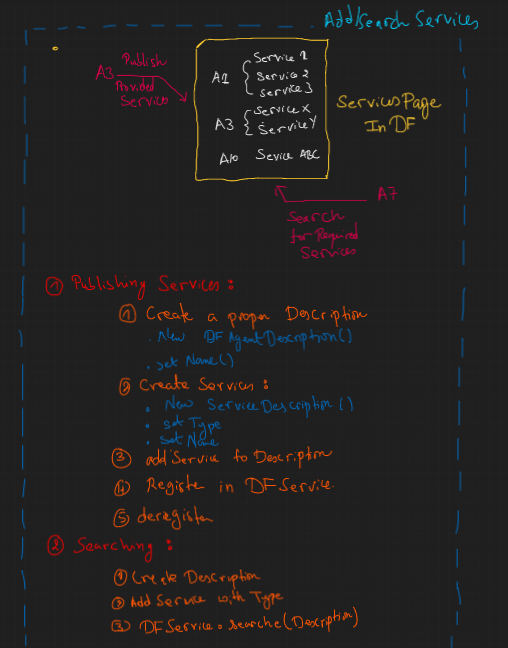 Add/Search Services
A3 Publish
Provided
Services
A1 { Service 1
Service 2
Service 3
A3 { Service X
Service Y
A10 Service ABC
Services Page
In DF
A7
Search
for Required
Services
① Publishing Services :
① Create a proper Description
. New DFAgentDescription()
. set Name()
② Create Services :
• New ServiceDescription()
• set Type
• set Name
③ add Service to Description
④ Register in DFService.
⑤ deregister
② Searching :
① Create Description
② Add Service with Type
③ DFService.searche(Description)